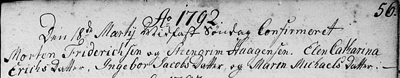 Ao 1792. 56.
Den 18de Martij Midfast Søndag Confirmeret
Morten Friderichsen og Steengrim Haagensen. Elen Catharina
Erichs Datter. Ingebor Jacobs Datter, og Maren Michaels Datter.